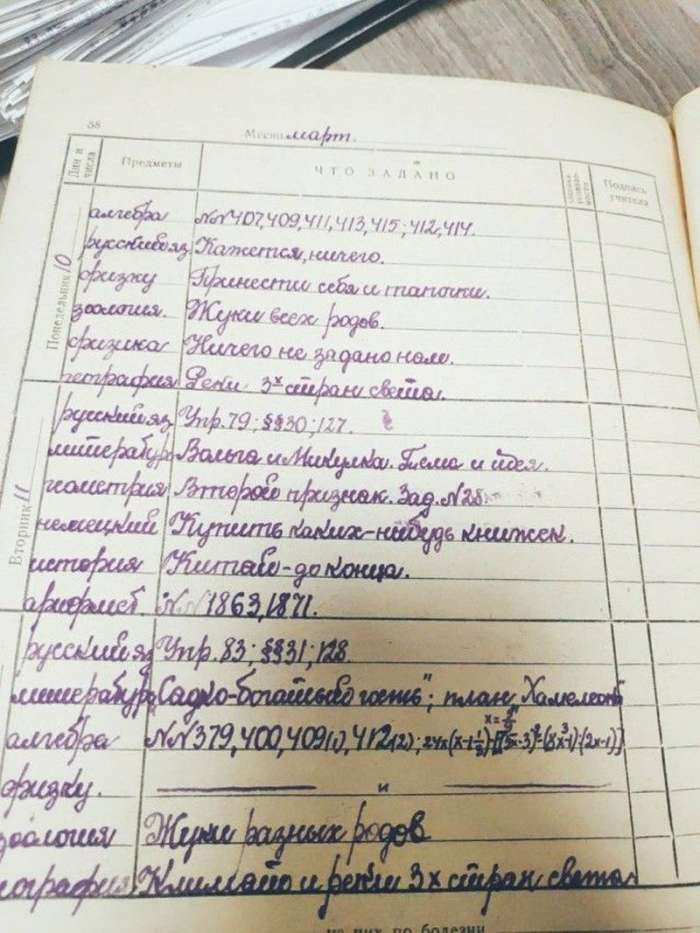 58
Месяц март.
Дни и числа Предметы ЧТО ЗАДАНО Подпись учителя
Понедельник 10
алгебра №№407,409,411,413,415;412,414.
русский яз Кажется, ничего.
физку Принести себя и тапочки.
зоология. Жуки всех родов.
физика Ничего не задано нам.
география Реки 3х стран света.
Вторник 11
русский яз Упр.79; §§30;127.
литература Вольга и Микулка. Тема и идея.
геометрия Второй признак. Зад. №28
немецкий Купить каких-нибудь книжек.
история Китай - до конца.
арифмет. №№1863,1871.
русский яз Упр.83; §§31;128.
литература "Садко-богатый гость"; план "Хамелеон"
алгебра №№379,400,409(1),412(2);
физку. — и —
зоология Жуки разных родов
география Климат и реки 3х стран света
из них по болезни